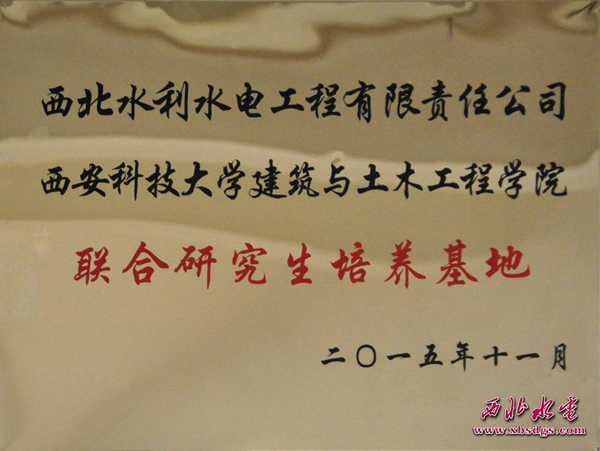 西北水利水电工程有限责任公司
西安科技大学建筑与土木工程学院
联合研究生培养基地
二〇一五年十一月
西北水电
www.xbsdgs.com